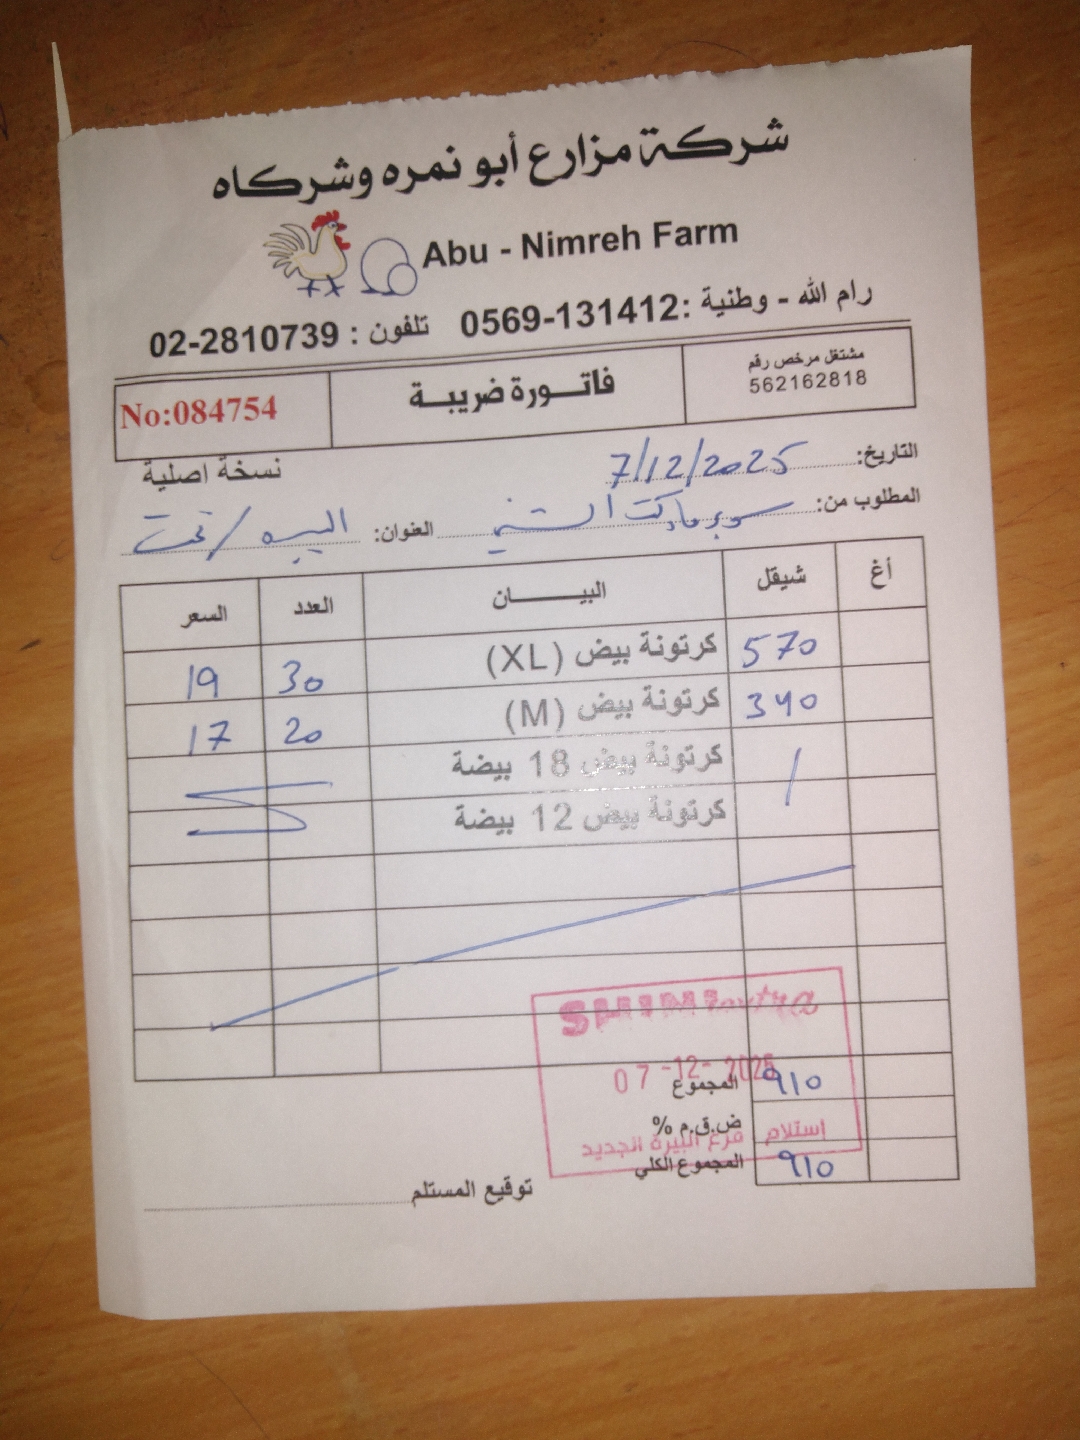 شركة مزارع أبو نمره وشركاه
Abu - Nimreh Farm
رام الله - وطنية :0569-131412 تلفون : 02-2810739
مشتغل مرخص رقم
562162818
فاتورة ضريبة
No:084754
نسخة اصلية
التاريخ: 7/12/2025
المطلوب من: سوبرماركت الشني العنوان: البيره / تحت
أغ شيقل البيــــــان العدد السعر
570 كرتونة بيض (XL) 30 19
340 كرتونة بيض (M) 20 17
كرتونة بيض 18 بيضة
كرتونة بيض 12 بيضة
SHINI extra
07-12-2025
المجموع 910
ض.ق.م %
استلام فرع البيرة الجديد
المجموع الكلي 910
توقيع المستلم